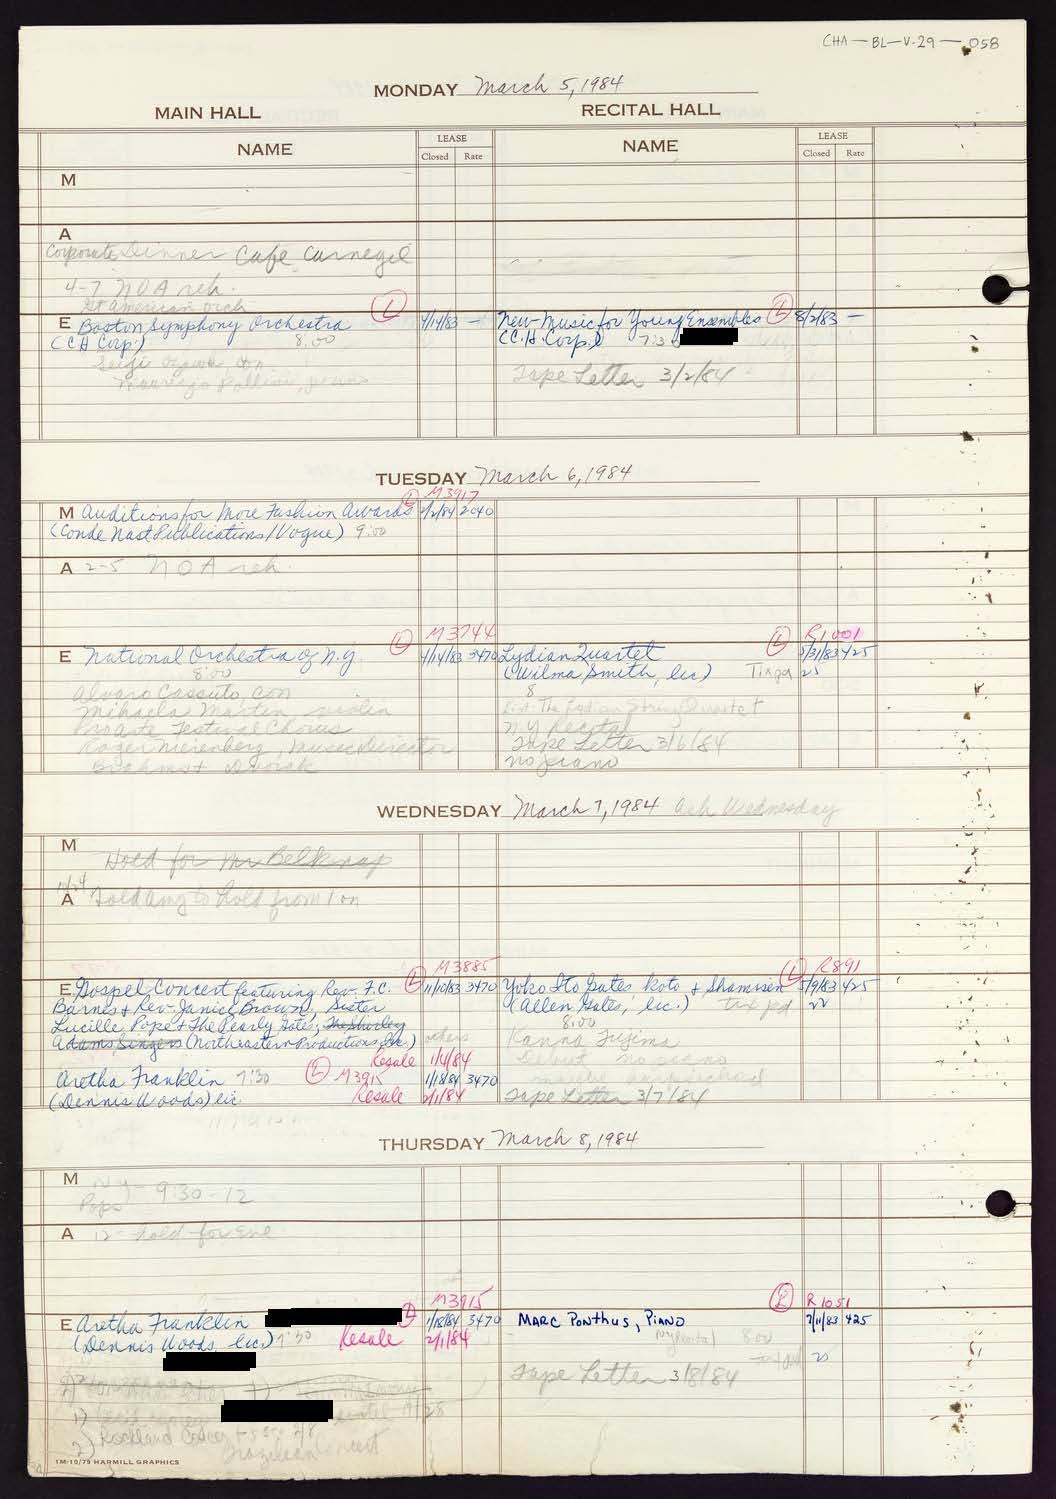 CHA-BL-V-29-058
MONDAY March 5, 1984
MAIN HALL RECITAL HALL
NAME LEASE NAME LEASE
Closed Rate Closed Rate
M
A
Corporate Dinner Cafe Carnegie
4-7 NOA reh.
1st American Orch
E Boston Symphony Orchestra L 4/14/83 — New Music for Young Ensembles L 8/2/83 —
(CH Corp.) 8:00 (C.H. Corp.) 7:30
Seiji Ozawa, con
Maurizio Pollini, piano Tape Letter 3/2/84
TUESDAY March 6, 1984
L M3917
M Auditions for More Fashion Awards 2/2/84 2040
(Conde Nast Publications/Vogue) 9:00
A 2-5 NOA reh.
L M3744 L R1001
E National Orchestra of N.Y. 4/14/83 3470 Lydian Quartet 5/31/83 425
8:00 (Wilma Smith, lic) Tix pd 25
Alvaro Cassuto, con 8
Mihaela Martin violin List: The Lydian String Quartet
Pro Arte Festival Chorus NY Recital
Roger Nierenberg, Music Director Tape Letter 3/6/84
Brahms + Dvorak no piano
WEDNESDAY March 7, 1984 Ash Wednesday
M
Hold for Mr Belknap
A Told Amy to hold from 1 on
L M3885 L R891
E. Gospel Concert featuring Rev. F.C. 11/10/83 3470 Yoko Ito Gates koto + Shamisen 5/9/83 425
Barnes + Rev. Janice Brown, Sister (Allen Gates, lic.) tix pd 22
Lucille Pope + The Pearly Gates, The Shirley 8:00
Adams Singers (Northeastern Productions, Inc.) others Kanna Fujima
Resale 1/4/84 Debut no piano
Aretha Franklin 7:30 L M3915 1/18/84 3470 maybe harpsichord
(Dennis Woods) lic Resale 2/1/84 Tape Letter 3/7/84
THURSDAY March 8, 1984
M NY - 9:30-12
Pops
A 12- hold for Eve
M3915 L R1051
E Aretha Franklin L 1/18/84 3470 MARC PONTHUS, PIANO 7/11/83 425
(Dennis Woods, lic.) 7:30 Resale 2/1/84 NY Recital 8:00
25
Tape Letter 3/8/84
1)
2) Rockland
Brazilian Concert
1M-10/79 HARMILL GRAPHICS